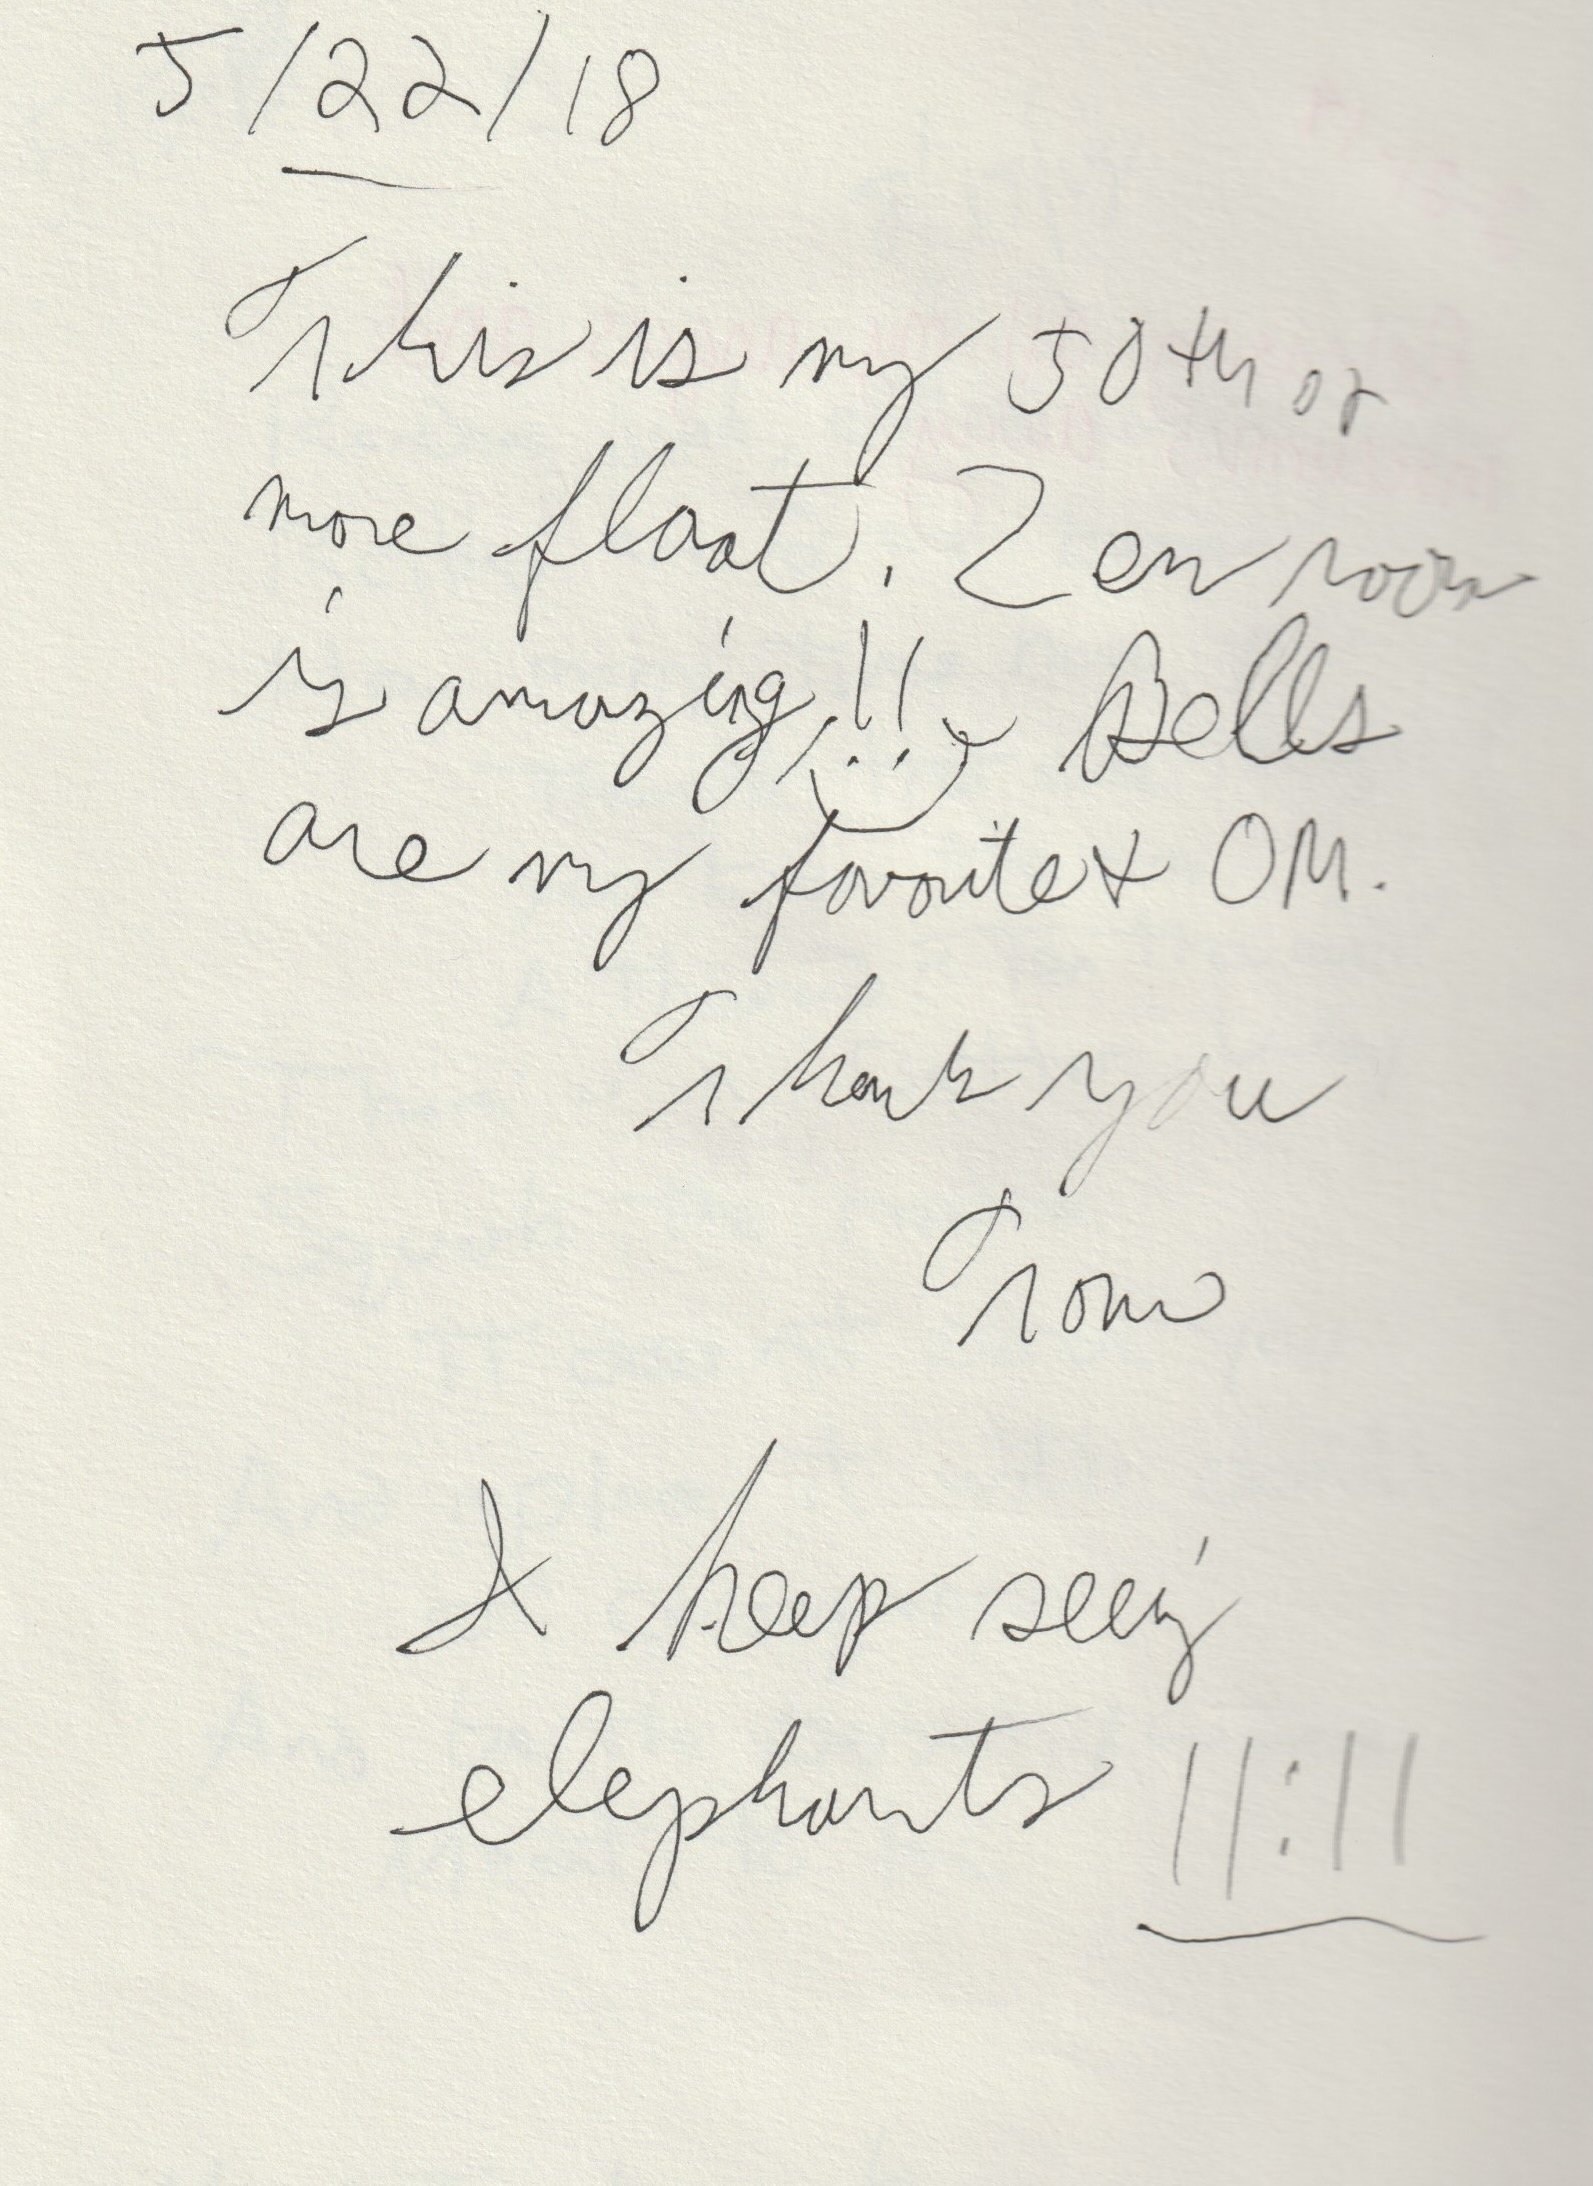 5/22/18
This is my 50th or
more float. Zen room
is amazing!!! Bells
are my favorite + OM.
Thank you
Tom
I keep seeing
elephants 11:11